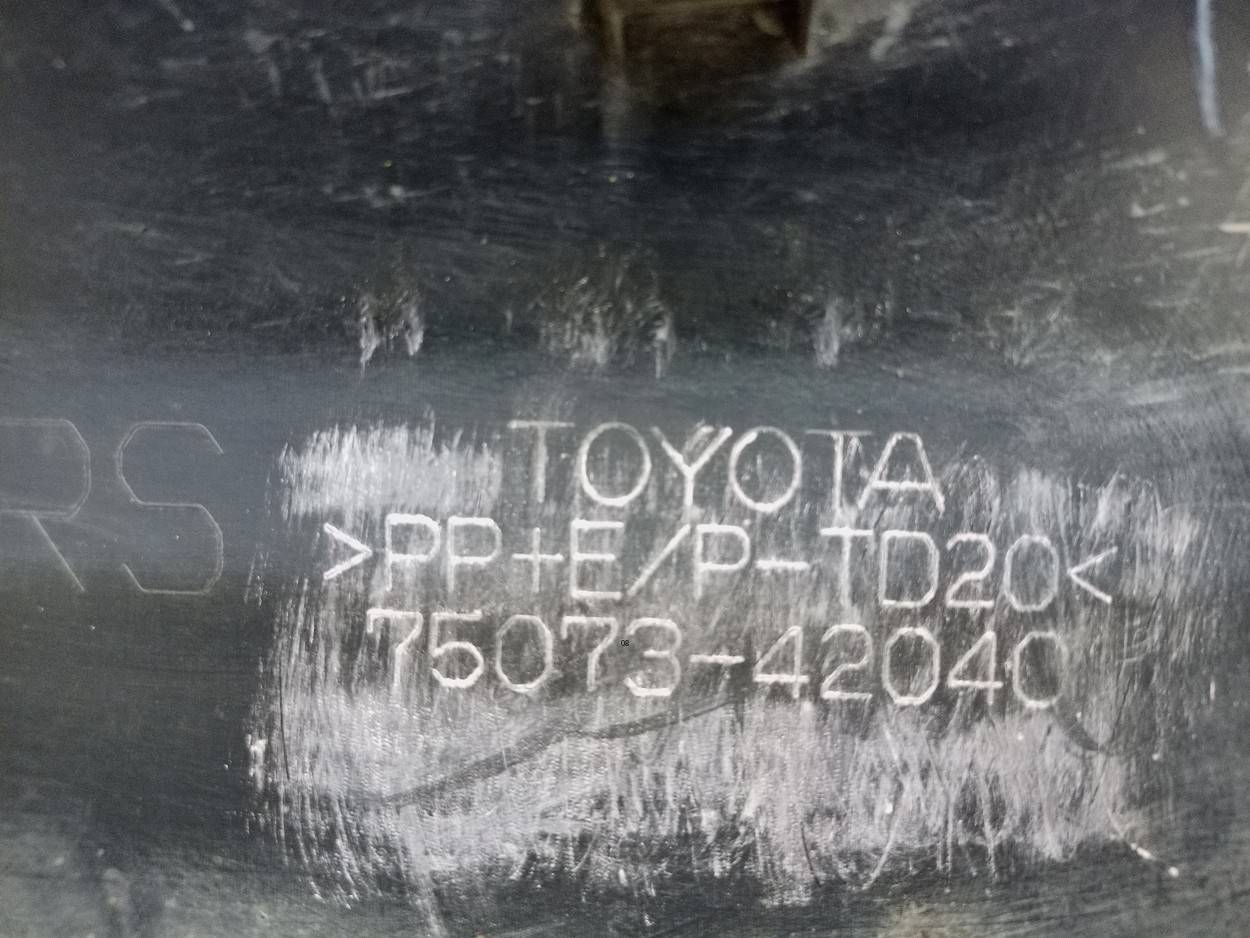 RS
TOYOTA
>PP+E/P-TD20<
75073-42040
08